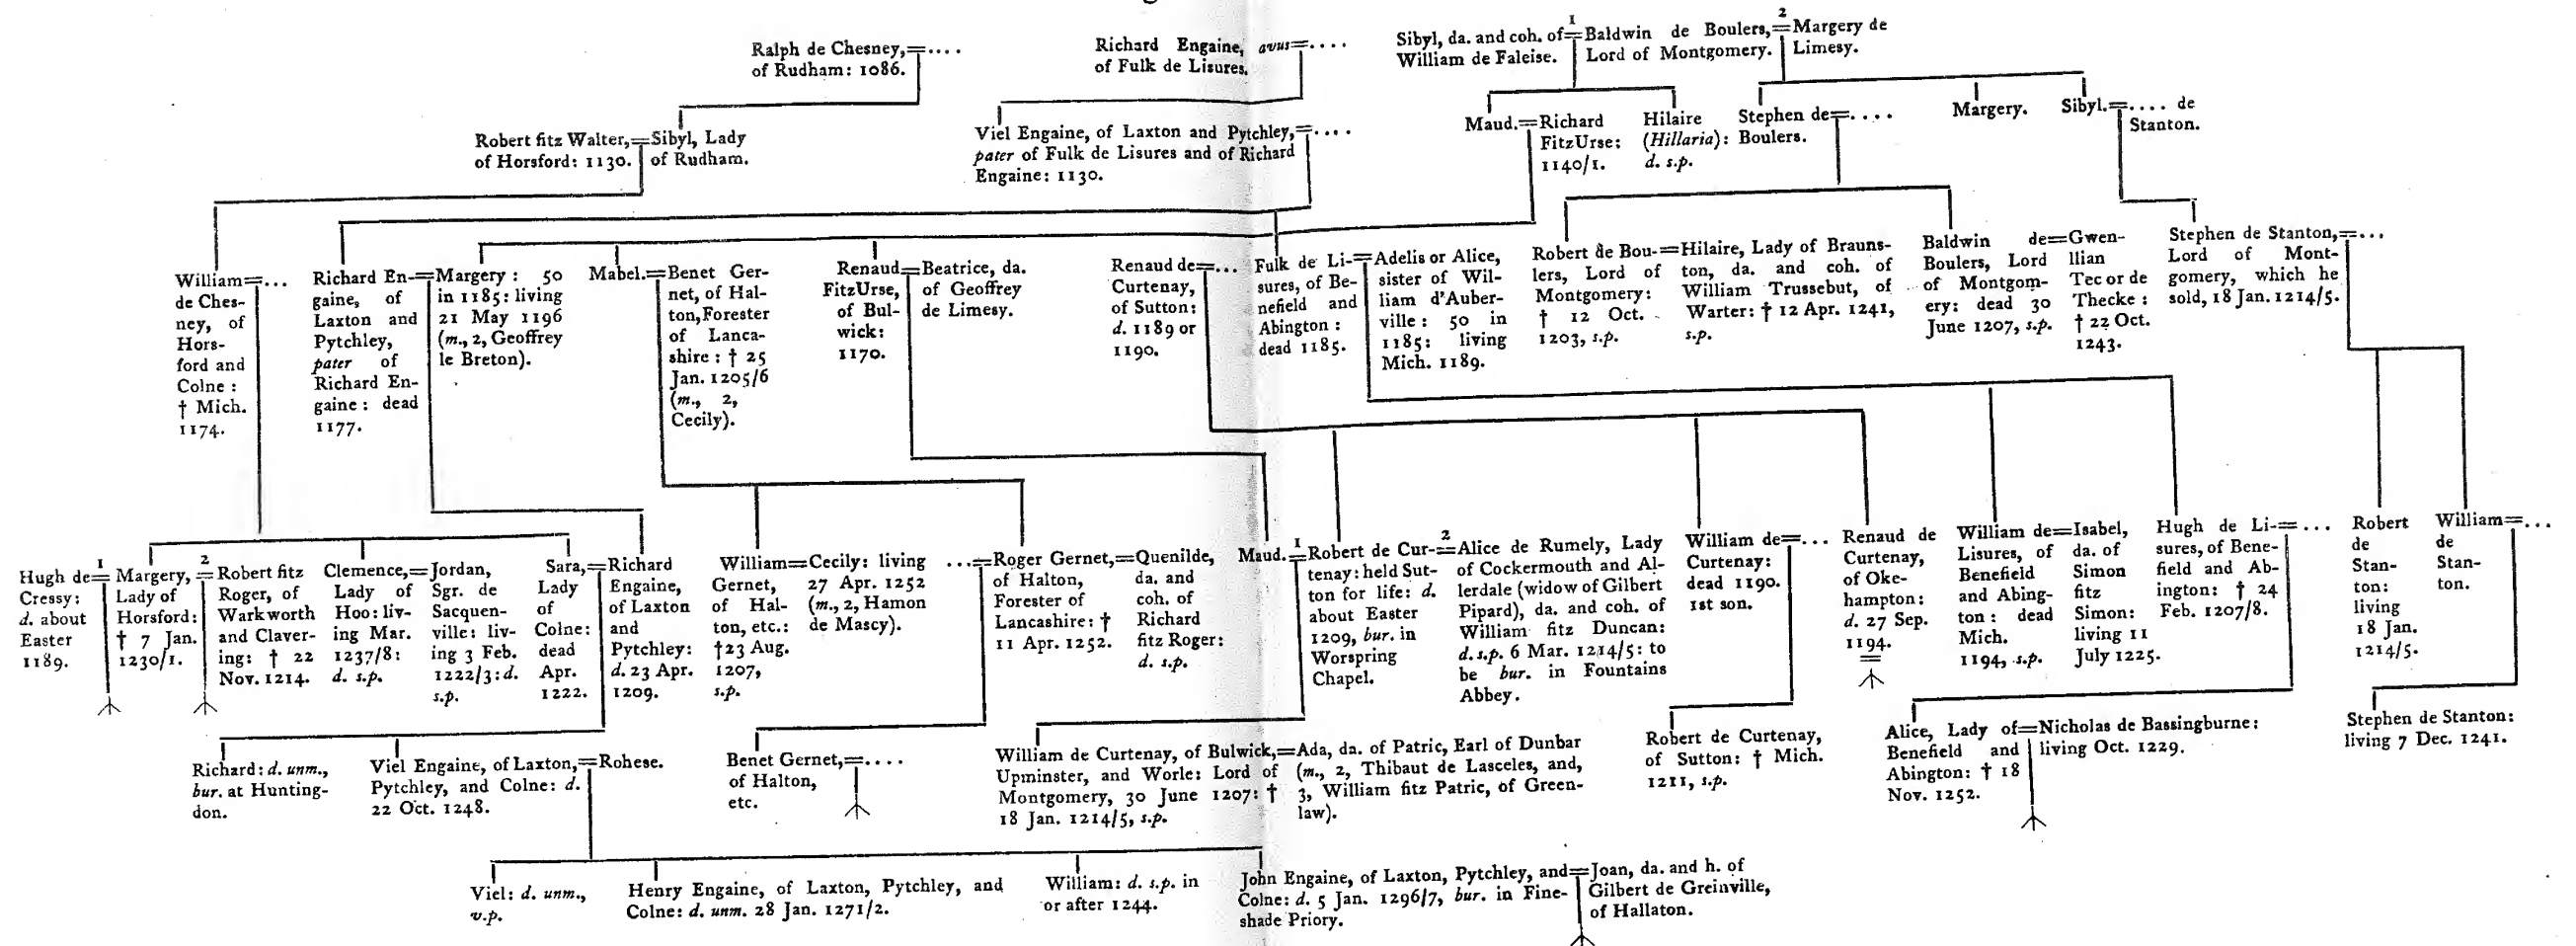 Ralph de Chesney,=....
of Rudham: 1086.
Richard Engaine, avus=....
of Fulk de Lisures.
1
2
Sibyl, da. and coh. of=Baldwin de Boulers,=Margery de
William de Faleise. Lord of Montgomery. Limesy.
Robert fitz Walter,=Sibyl, Lady
of Horsford: 1130. of Rudham.
Viel Engaine, of Laxton and Pytchley,=....
pater of Fulk de Lisures and of Richard
Engaine: 1130.
Maud.=Richard
FitzUrse:
1140/1.
Hilaire
(Hillaria):
d. s.p.
Stephen de=....
Boulers.
Margery.
Sibyl.=.... de
Stanton.
William=...
de Ches-
ney, of
Hors-
ford and
Colne :
† Mich.
1174.
Richard En-=Margery : 50
gaine, of
Laxton and
Pytchley,
pater of
Richard En-
gaine : dead
1177.
in 1185: living
21 May 1196
(m., 2, Geoffrey
le Breton).
Mabel.=Benet Ger-
net, of Hal-
ton, Forester
of Lanca-
shire : † 25
Jan. 1205/6
(m., 2,
Cecily).
Renaud=Beatrice, da.
FitzUrse,
of Bul-
wick:
1170.
of Geoffrey
de Limesy.
Renaud de=...
Curtenay,
of Sutton:
d. 1189 or
1190.
Fulk de Li-=Adelis or Alice,
sures, of Be-
nefield and
Abington :
dead 1185.
sister of Wil-
liam d'Auber-
ville : 50 in
1185: living
Mich. 1189.
Robert de Bou-=Hilaire, Lady of Brauns-
lers, Lord of
Montgomery:
† 12 Oct.
1203, s.p.
ton, da. and coh. of
William Trussebut, of
Warter: † 12 Apr. 1241,
s.p.
Baldwin de=Gwen-
Boulers, Lord
of Montgom-
ery: dead 30
June 1207, s.p.
llian
Tec or de
Thecke :
† 22 Oct.
1243.
Stephen de Stanton,=...
Lord of Mont-
gomery, which he
sold, 18 Jan. 1214/5.
1
2
Hugh de=Margery,=Robert fitz
Cressy:
d. about
Easter
1189.
Lady of
Horsford:
† 7 Jan.
1230/1.
Roger, of
Warkworth
and Claver-
ing: † 22
Nov. 1214.
Clemence,=Jordan,
Lady of
Hoo: liv-
ing Mar.
1237/8:
d. s.p.
Sgr. de
Sacquen-
ville: liv-
ing 3 Feb.
1222/3: d.
s.p.
Sara,=Richard
Lady
of
Colne:
dead
Apr.
1222.
Engaine,
of Laxton
and
Pytchley:
d. 23 Apr.
1209.
William=Cecily: living
Gernet,
of Hal-
ton, etc.:
†23 Aug.
1207,
s.p.
27 Apr. 1252
(m., 2, Hamon
de Mascy).
...=Roger Gernet,=Quenilde,
of Halton,
Forester of
Lancashire: †
11 Apr. 1252.
da. and
coh. of
Richard
fitz Roger:
d. s.p.
1
2
Maud.=Robert de Cur-=Alice de Rumely, Lady
tenay: held Sut-
ton for life: d.
about Easter
1209, bur. in
Worspring
Chapel.
of Cockermouth and Al-
lerdale (widow of Gilbert
Pipard), da. and coh. of
William fitz Duncan:
d. s.p. 6 Mar. 1214/5: to
be bur. in Fountains
Abbey.
William de=...
Curtenay:
dead 1190.
1st son.
Renaud de
Curtenay,
of Oke-
hampton:
d. 27 Sep.
1194.
=
William de=Isabel,
Lisures, of
Benefield
and Abing-
ton : dead
Mich.
1194, s.p.
da. of
Simon
fitz
Simon:
living 11
July 1225.
Hugh de Li-=...
sures, of Bene-
field and Ab-
ington: † 24
Feb. 1207/8.
Robert
de
Stan-
ton:
living
18 Jan.
1214/5.
William=...
de
Stan-
ton.
Richard: d. unm.,
bur. at Hunting-
don.
Viel Engaine, of Laxton,=Rohese.
Pytchley, and Colne: d.
22 Oct. 1248.
Benet Gernet,=....
of Halton,
etc.
William de Curtenay, of Bulwick,=Ada, da. of Patric, Earl of Dunbar
Upminster, and Worle: Lord of
Montgomery, 30 June 1207: †
18 Jan. 1214/5, s.p.
(m., 2, Thibaut de Lasceles, and,
3, William fitz Patric, of Green-
law).
Robert de Curtenay,
of Sutton: † Mich.
1211, s.p.
Alice, Lady of=Nicholas de Bassingburne:
Benefield and
Abington: † 18
Nov. 1252.
living Oct. 1229.
Stephen de Stanton:
living 7 Dec. 1241.
Viel: d. unm.,
v.p.
Henry Engaine, of Laxton, Pytchley, and
Colne: d. unm. 28 Jan. 1271/2.
William: d. s.p. in
or after 1244.
John Engaine, of Laxton, Pytchley, and=Joan, da. and h. of
Colne: d. 5 Jan. 1296/7, bur. in Fine-
shade Priory.
Gilbert de Greinville,
of Hallaton.